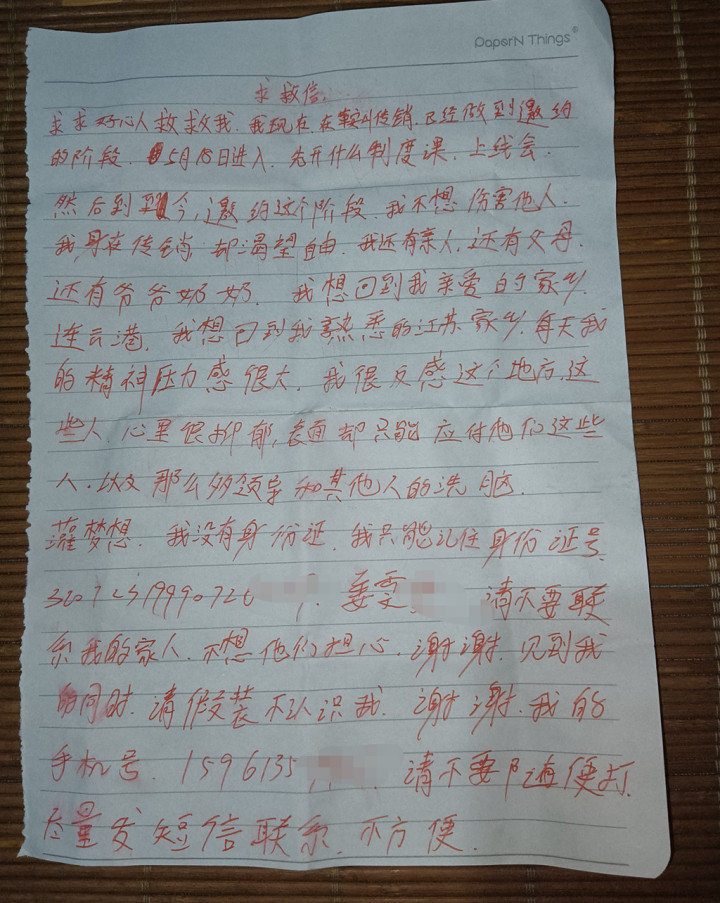 PaperN Things
求救信.
求求好心人救救我.我现在在鞍山传销.已经做到邀约
的阶段. 5月15日进入.先开什么制度课.上线会.
然后到现今,邀约这个阶段.我不想伤害他人.
我身在传销,却渴望自由.我还有亲人.还有父母.
还有爷爷奶奶. 我想回到我亲爱的家乡
连云港.我想回到我熟悉的江苏家乡.每天我
的精神压力感很大.我很反感这个地方.这
些人.心里很抑郁,表面却只能应付他们这些
人.以及那么多领导和其他人的洗脑.
灌梦想. 我没有身份证.我只能记住身份证号.
19990726 请不要联
系我的家人.不想他们担心.谢谢.见到我
的同时.请假装不认识我.谢谢.我的
手机号. 1596135 请不要随便打.
尽量发短信联系.不方便.